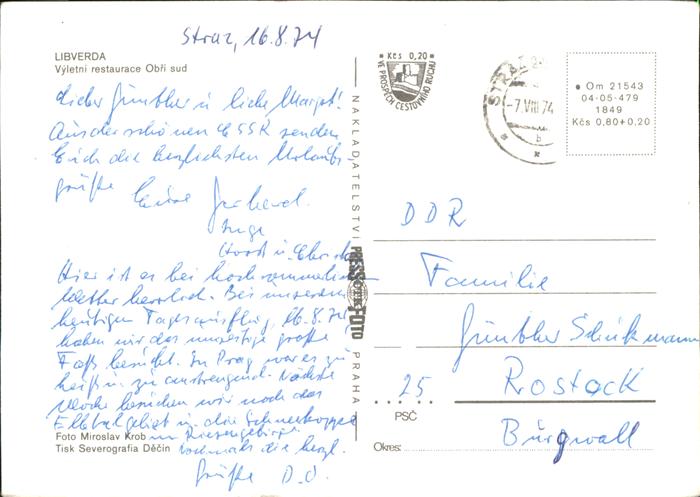 Straz, 16.8.74
LIBVERDA
Výletní restaurace Obří sud
Lieber Günther u. liebe Margot!
Aus der schönen ČSSR senden
Euch die herzlichsten Urlaubs-
grüße Eure
Inge
Horst u.
Hier ist es bei hochsommerlichem
Wetter herrlich. Bei unserem
heutigen Tagesausflug, 16.8.74
haben wir das unseitige große
Faß besucht. In Prag war es zu
heiß u. zu anstrengend. Nächste
Woche besuchen wir noch das
Elbtalgebiet u. die Schneekoppe
im Riesengebirge.
Nochmals die herzl.
Grüße D. O.
Foto Miroslav Krob
Tisk Severografia Děčín
NAKLADATELSTVÍ PRESSFOTO PRAHA
Kčs 0,20
VE PROSPĚCH CESTOVNÍHO RUCHU
STRÁŽ
-7.VIII.74
b
Om 21543
04-05-479
1849
Kčs 0,80+0,20
DDR
Familie
Günther Schükmann
25 Rostock
PSČ
Burgwall
Okres: